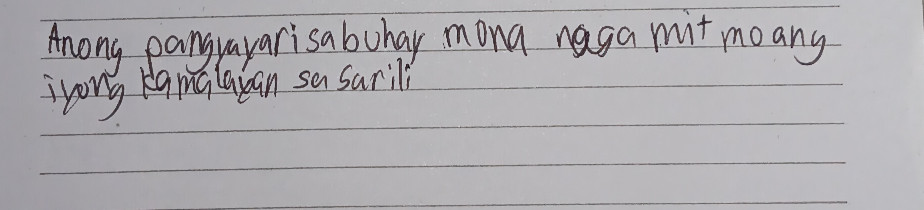 Anong pangyayari sa buhay mo na nagamit mo ang
iyong kamalayan sa sarili